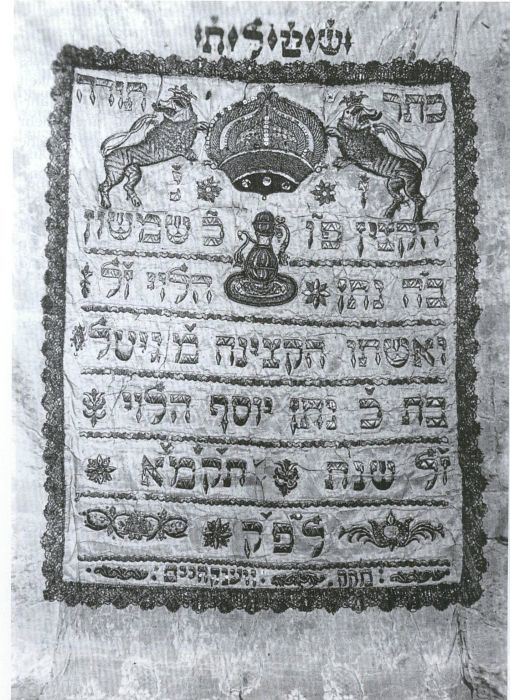 כתר תורה
הקצין פ״ו כ׳ שמשון
ב״ה נתן הלוי ז״ל
ואשתו הקצינה מ׳ גיטל
בת כ׳ נתן יוסף הלוי
ז״ל שנת תקמא
לפק
: מקק